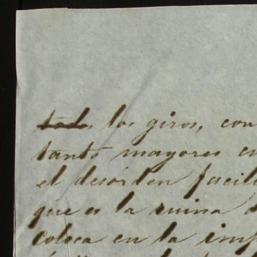 todos los giros, con
tanto mayores en
el desorden facili
que es la ruina
coloca en la imp